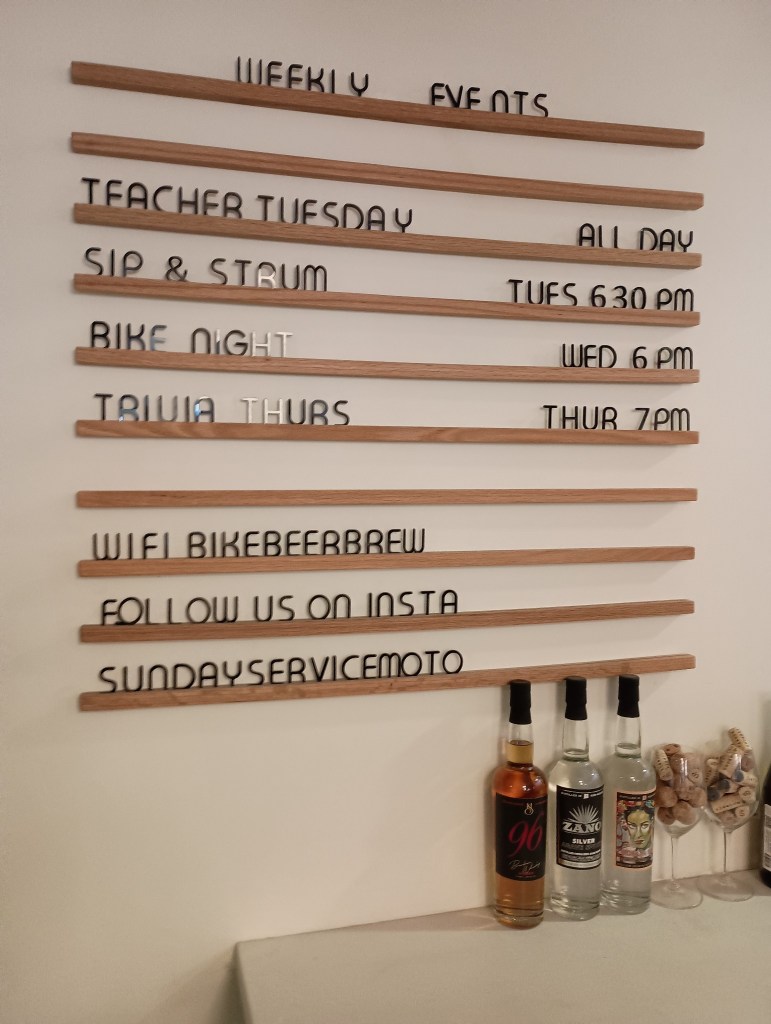 WEEKLY EVENTS
TEACHER TUESDAY ALL DAY
SIP & STRUM TUES 630 PM
BIKE NIGHT WED 6 PM
TRIVIA THURS THUR 7PM
WIFI BIKEBEERBREW
FOLLOW US ON INSTA
SUNDAYSERVICEMOTO
96
ZANO
SILVER